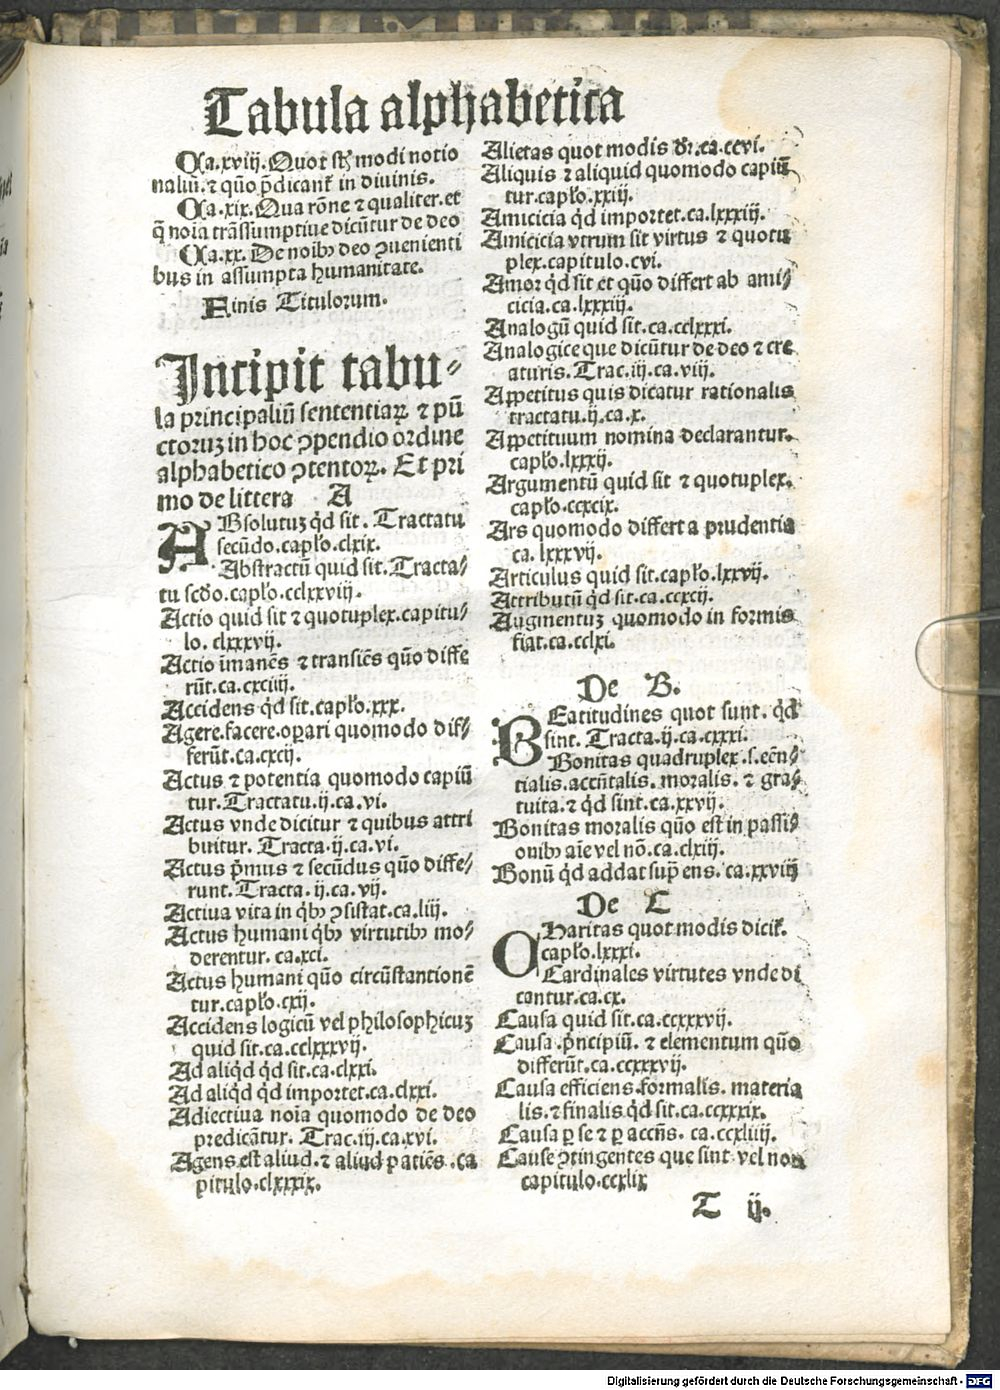 Tabula alphabetica
Ca.xviij. Quot sūt modi notio
naliū. ⁊ quō p̄dicant᷑ in diuinis.
Ca.xix. Qua rōne ⁊ qualiter. et
q̄ noīa trāssumptiue dicūtur de deo
Ca.xx. De noīb⁹ deo ꝯuenienti
bus in assumpta humanitate.
Finis Titulorum.
Incipit tabu-
la principaliū sententiaꝝ ⁊ pū
ctoruꝫ in hoc ꝯpendio ordine
alphabetico ꝯtentoꝝ. Et pri
mo de littera A
ABsolutuꝫ qd̄ sit. Tractatu
secūdo.capło.clxix.
Abstractū quid sit. Tracta-
tu scd̄o.capło.cclxxviij.
Actio quid sit ⁊ quotuplex.capitu-
lo. clxxxvij.
Actio īmanēs ⁊ transiēs quō diffe
rūt.ca.cxciiij.
Accidens qd̄ sit.capło.xxx.
Agere.facere.oꝑari quomodo dif-
ferūt.ca.cxcij.
Actus ⁊ potentia quomodo capiū
tur. Tractatu.ij.ca.vi.
Actus vnde dicitur ⁊ quibus attri
buitur. Tracta.ij.ca.vi.
Actus p̄mus ⁊ secūdus quō diffe-
runt. Tracta. ij.ca.vij.
Actiua vita in qb⁹ ꝯsistat.ca.liij.
Actus humani qb⁹ virtutib⁹ mo-
derentur. ca.xci.
Actus humani quō circūstantionē
tur.capło.cxij.
Accidens logicū vel philosophicuꝫ
quid sit.ca.cclxxxvij.
Ad aliqd̄ qd̄ sit.ca.clxxi.
Ad aliqd̄ qd̄ importet.ca.clxxi.
Adiectiua noīa quomodo de deo
predicātur. Trac.iij.ca.xvi.
Agens est aliud.⁊ aliud patiēs .ca
pitulo.clxxxix.
Alietas quot modis dr̄.ca.ccvi.
Aliquis ⁊ aliquid quomodo capiū
tur.capło.xxiij.
Amicicia qd̄ importet.ca.lxxxiij.
Amicicia vtrum sit virtus ⁊ quotu
plex.capitulo.cvi.
Amor qd̄ sit et quō differt ab ami-
cicia.ca.lxxxiij.
Analogū quid sit.ca.cclxxxi.
Analogice que dicūtur de deo ⁊ cre
aturis. Trac.iij.ca.viij.
Appetitus quis dicatur rationalis
tractatu.ij.ca.x.
Appetituum nomina declarantur.
capło.lxxxij.
Argumentū quid sit ⁊ quotuplex.
capło.ccxcix.
Ars quomodo differt a prudentia
ca. lxxxvij.
Articulus quid sit.capło.lxxvij.
Attributū qd̄ sit.ca.ccxcij.
Augmentuꝫ quomodo in formis
fiat.ca.cclxi.
De B.
BEatitudines quot sunt. qd̄
sint. Tracta.ij.ca.cxxxi.
Bonitas quadruplex .s.ecēn
tialis.accn̄talis. moralis. ⁊ gra-
tuita.⁊ qd̄ sint.ca.xxvij.
Bonitas moralis quō est in passi-
onib⁹ aīe vel nō.ca.clxiij.
Bonū qd̄ addat suꝑ ens. ca.xxviij
De C
CHaritas quot modis dicit᷑.
capło.lxxxi.
Cardinales virtutes vnde di
cantur.ca.cx.
Causa quid sit.ca.ccxxxvij.
Causa .p̄ncipiū. ⁊ elementum quō
differūt.ca.ccxxxvij.
Causa efficiens.formalis. materia
lis.⁊ finalis.qd̄ sit.ca.ccxxxix.
Causa ꝑ se ⁊ ꝑ accn̄s. ca.ccxliiij.
Cause ꝯtingentes que sint vel non
capitulo.ccxlix
T ij.
Digitalisierung gefördert durch die Deutsche Forschungsgemeinschaft - DFG